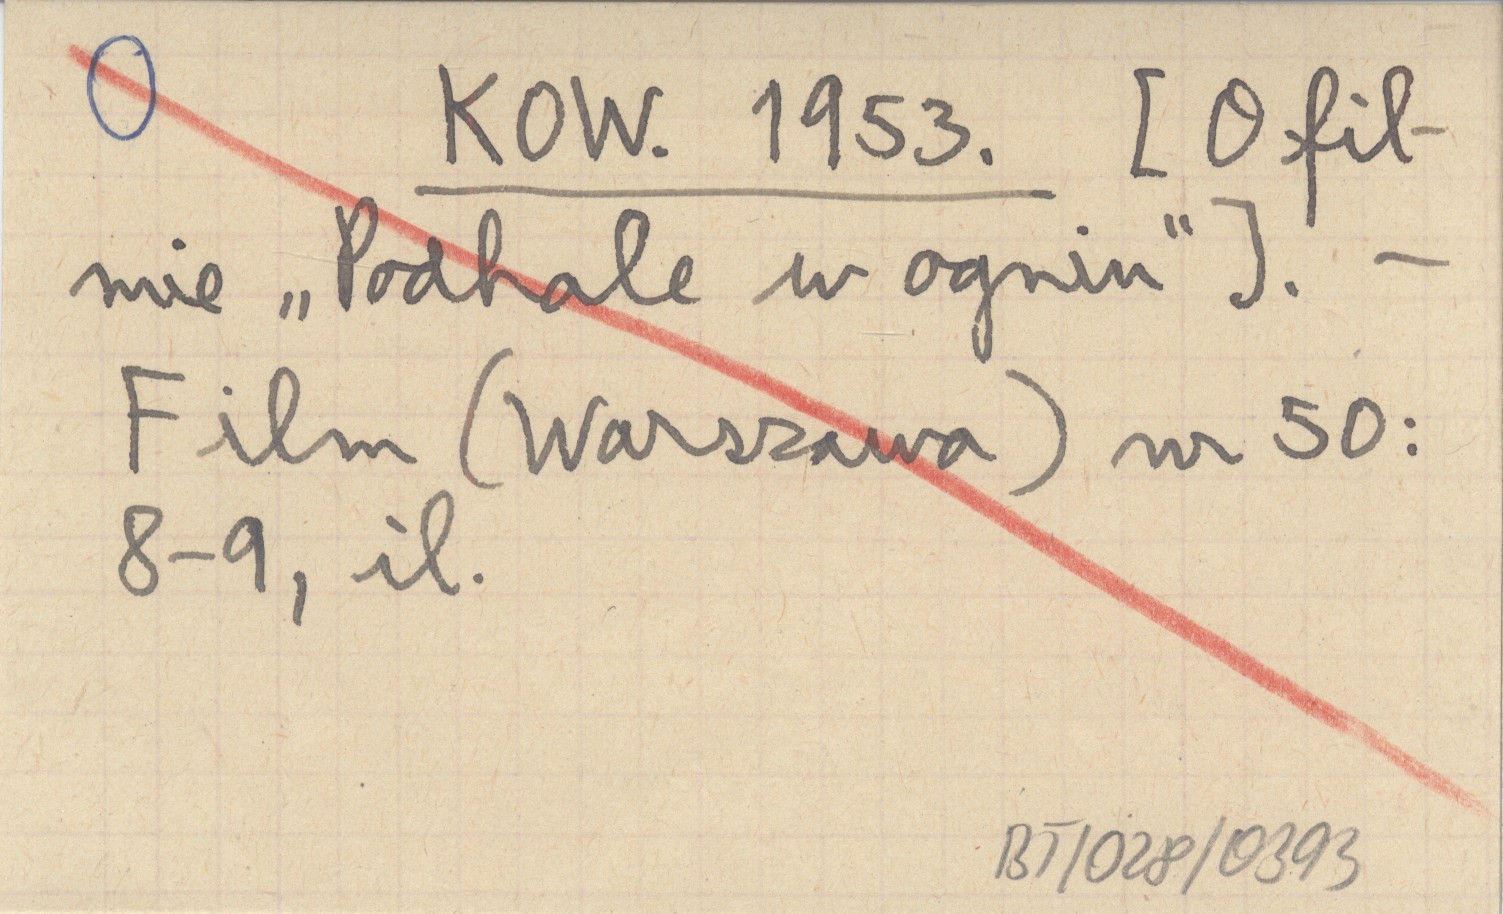 KOW. 1953. [O fil-
mie „Podhale w ogniu"]. —
Film (Warszawa) nr 50:
8-9, il.
BT/028/0393